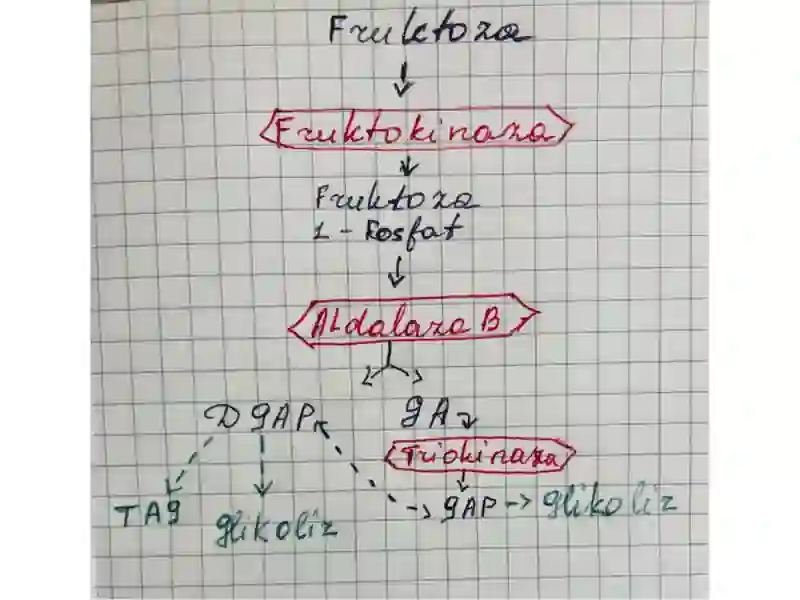 Fruktoza
Fruktokinaza
Fruktoza
1 - Fosfat
Aldalaza B
DGAP
GA
Triokinaza
TAG
glikoliz
GAP
glikoliz